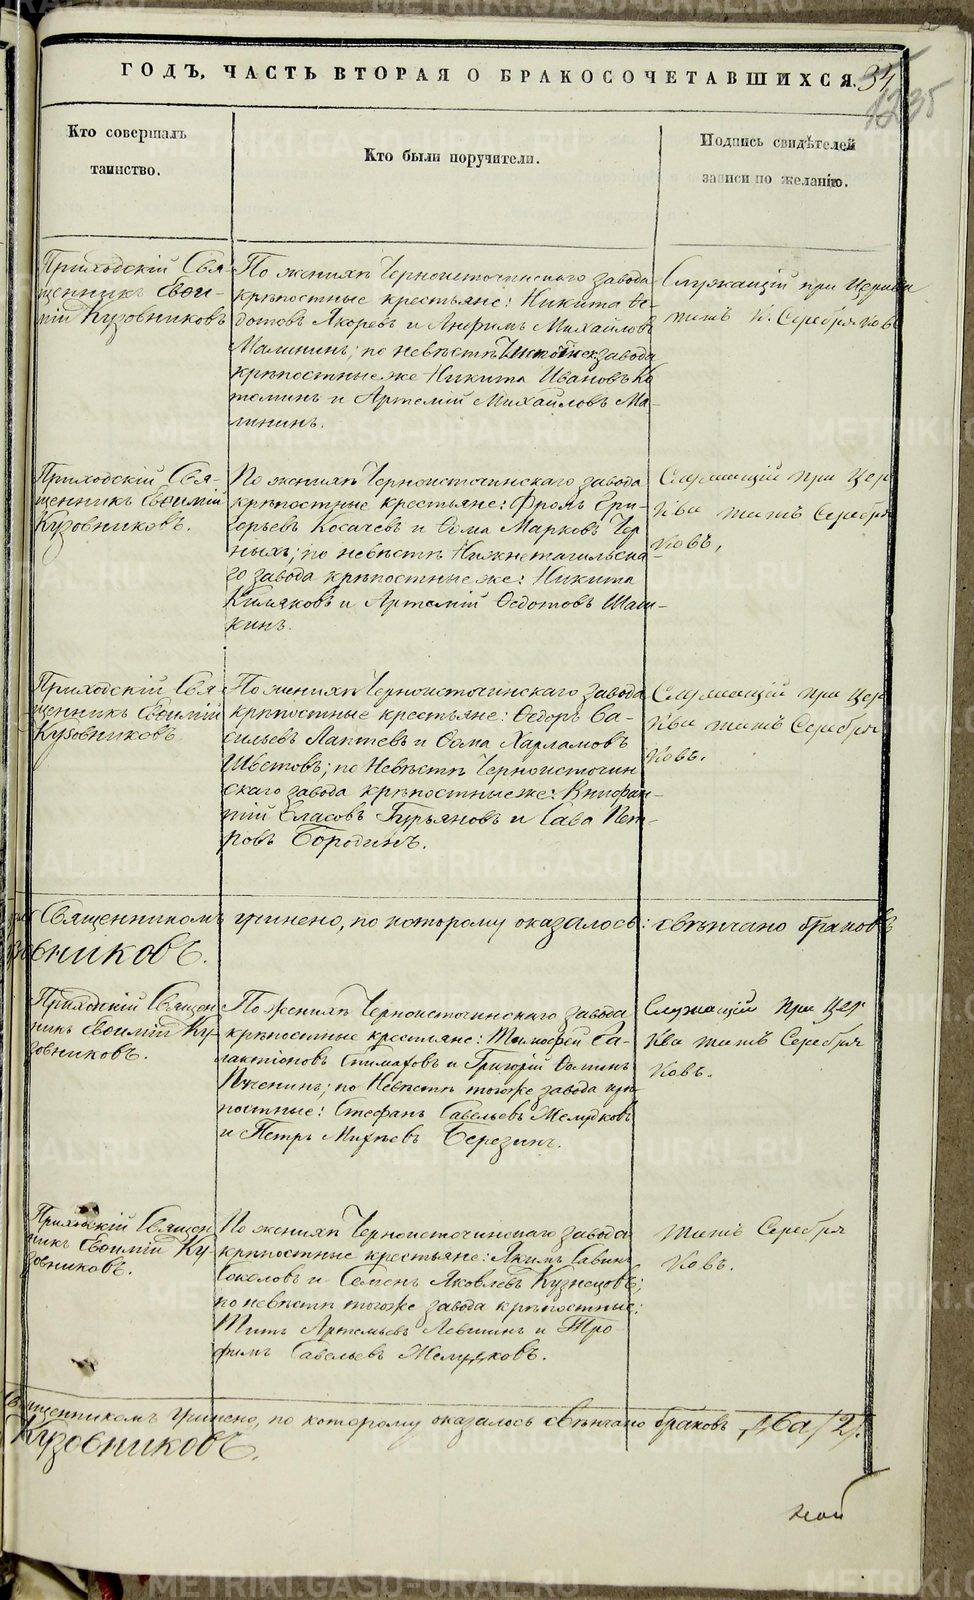 ГОДЪ, ЧАСТЬ ВТОРАЯ О БРАКОСОЧЕТАВШИХСЯ.
1235
Кто совершалъ
таинство.
Кто были поручители.
Подпись свидѣтелей
записи по желанію.
Приходскій Свя-
щенникъ Евои-
мій Кузовниковъ
По женихѣ Черноисточинскаго завода
крѣпостные крестьяне: Никита Ѳе-
дотовъ Якоревъ и Анфимъ Михайловъ
Малининъ; по невѣстѣ завода
крѣпостные же Никита Ивановъ
и Артемій Михайловъ Ма-
лининъ.
Служащій при Церкви
К. Серебряковъ
Приходскій Свя-
щенникъ Евоимій
Кузовниковъ.
По женихѣ Черноисточинскаго завода
крѣпостные крестьяне: Фролъ Гри-
горьевъ Косачевъ и Ѳома Марковъ Чер
ныхъ; по невѣстѣ Нижнетагильска-
го завода крѣпостные же: Никита
и Артемій Ѳедотовъ Шаш-
кинъ.
Служащій при Цер
кви Серебря
ковъ,
Приходскій Свя
щенникъ Евоимій
Кузовниковъ
По женихѣ Черноисточинскаго завода
крѣпостные крестьяне: Ѳедоръ Ва-
сильевъ Лаптевъ и Ѳома Харламовъ
Шветовъ; по Невѣстѣ Черноисточин
скаго завода крѣпостные же:
Власовъ Гурьяновъ и Сава Пет-
ровъ Бородинъ.
Служащій при Цер
кви Серебря
ковъ.
Священникомъ учинено, по которому оказалось: свѣнчано браковъ
вниковъ.
Приходскій Священ
никъ Евоимій Ку-
зовниковъ.
По женихѣ Черноисточинскаго завода
крѣпостные крестьяне: Тимофей Га-
лактіоновъ и Григорій Ѳоминъ
Пученинъ; по Невѣстѣ тогоже завода крѣ
постные: Стефанъ Савельевъ
и Петръ Михѣевъ Березинъ.
Служащій при Цер
кви Серебря
ковъ.
Приходскій Священ
никъ Евоимій Ку
зовниковъ.
По женихѣ Черноисточинскаго завода
крѣпостные крестьяне: Якимъ Савинъ
Соколовъ и Семенъ Яковлевъ Кузнецовъ;
по невѣстѣ тогоже завода крѣпостные:
Титъ Артемьевъ Левшинъ и Тро-
фимъ Савельевъ
Серебря
ковъ.
Священникомъ учинено, по которому оказалось свѣнчано браковъ два /2/.
Кузовниковъ.